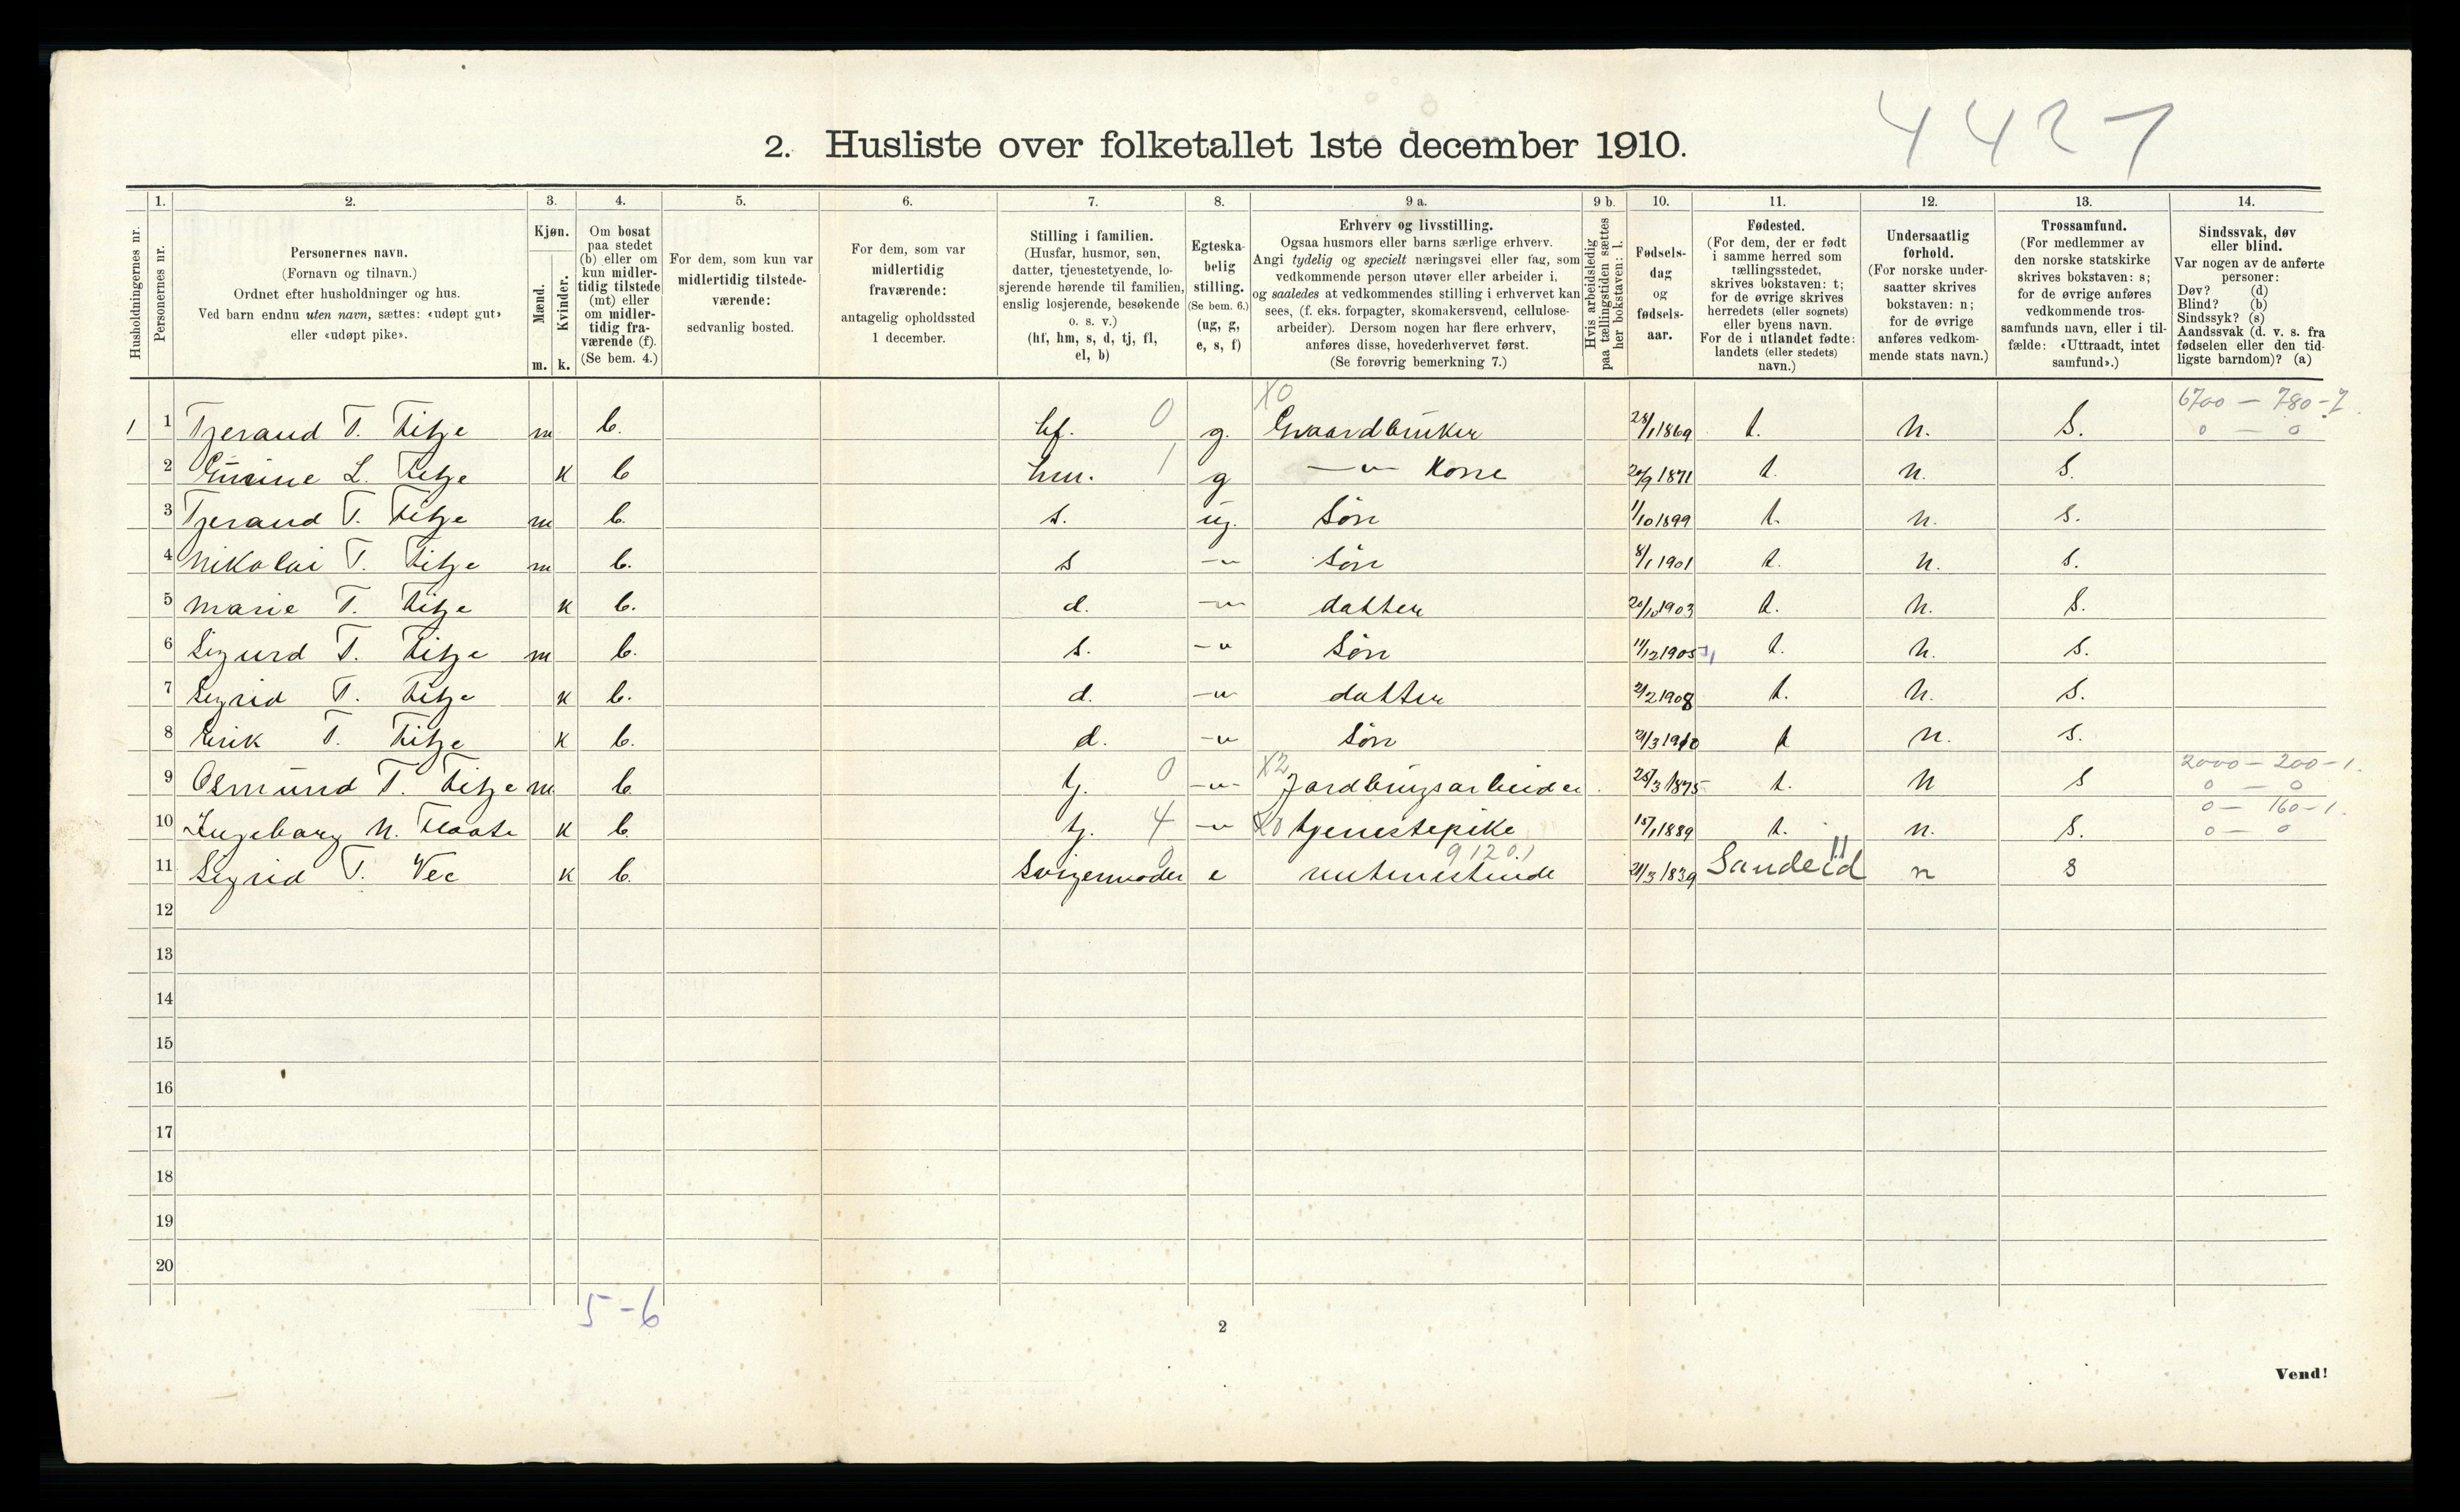 4427
2. Husliste over folketallet 1ste december 1910.
Husholdningernes nr.
1.
Personernes nr.
2.
Personernes navn.
(Fornavn og tilnavn.)
Ordnet efter husholdninger og hus.
Ved barn endnu uten navn, sættes: «udøpt gut»
eller «udøpt pike».
3.
Kjøn.
Mænd.
Kvinder.
m. k.
4.
Om bosat
paa stedet
(b) eller om
kun midler-
tidig tilstede
(mt) eller
om midler-
tidig fra-
værende (f).
(Se bem. 4.)
5.
For dem, som kun var
midlertidig tilstede-
værende:
sedvanlig bosted.
6.
For dem, som var
midlertidig
fraværende:
antagelig opholdssted
1 december.
7.
Stilling i familien.
(Husfar, husmor, søn,
datter, tjenestetyende, lo-
sjerende hørende til familien,
enslig losjerende, besøkende
o. s. v.)
(hf, hm, s, d, tj, fl,
el, b)
8.
Egteska-
belig
stilling.
(Se bem. 6.)
(ug, g,
e, s, f)
9 a.
Erhverv og livsstilling.
Ogsaa husmors eller barns særlige erhverv.
Angi tydelig og specielt næringsvei eller fag, som
vedkommende person utøver eller arbeider i,
og saaledes at vedkommendes stilling i erhvervet kan
sees, (f. eks. forpagter, skomakersvend, cellulose-
arbeider). Dersom nogen har flere erhverv,
anføres disse, hovederhvervet først.
(Se forøvrig bemerkning 7.)
9 b.
Hvis arbeidsledig
paa tællingstiden sættes
her bokstaven: l.
10.
Fødsels-
dag
og
fødsels-
aar.
11.
Fødested.
(For dem, der er født
i samme herred som
tællingsstedet,
skrives bokstaven: t;
for de øvrige skrives
herredets (eller sognets)
eller byens navn.
For de i utlandet fødte:
landets (eller stedets)
navn.)
12.
Undersaatlig
forhold.
(For norske under-
saatter skrives
bokstaven: n;
for de øvrige
anføres vedkom-
mende stats navn.)
13.
Trossamfund.
(For medlemmer av
den norske statskirke
skrives bokstaven: s;
for de øvrige anføres
vedkommende tros-
samfunds navn, eller i til-
fælde: «Uttraadt, intet
samfund».)
14.
Sindssvak, døv
eller blind.
Var nogen av de anførte
personer:
Døv? (d)
Blind? (b)
Sindssyk? (s)
Aandssvak (d. v. s. fra
fødselen eller den tid-
ligste barndom)? (a)
X0 6700 — 780-7.
1 1 Tjerand T. Fitje m b. hf. 0 g. Gaardbruker 28/1 1869 t. n. S. 0 — 0
2 Gurine L. Fitje k b hm. 1 g —"— Kone 20/9 1871 t. n. S.
3 Tjerand T. Fitje m b. s. ug. Søn 1/10 1899 t. n. s.
4 Nikolai T. Fitje m b. s —"— Søn 8/1 1901 t. n. s.
5 Marie T. Fitje k b. d. —"— datter 20/10 1903 t. n. S.
6 Sigurd T. Fitje m b. s. —"— Søn 11/12 1905 t. n. s.
7 Sigrid T. Fitje k b. d. —"— datter 2/2 1908 t. n. S.
8 Erik T. Fitje k b. d. —"— Søn 21/3 1910 t n. s.
X2 2000 — 200 — 1.
9 Osmund T. Fitje m b tj. 0 —"— Jordbrugsarbeider. 25/3 1875 t. n s 0 — 0
0 — 160 — 1.
10 Ingeborg N. Flaate k b. tj. 4 —"— X0 tjenestepike 15/1 1889 t. n. S. 0 — 0
9120.1 11
11 Sigrid T. Vee k b. Svigermoder 0 e rentenistinde 21/3 1839 Sandeid n s
12
13
14
15
16
17
18
19
20
5-6
2
Vend!